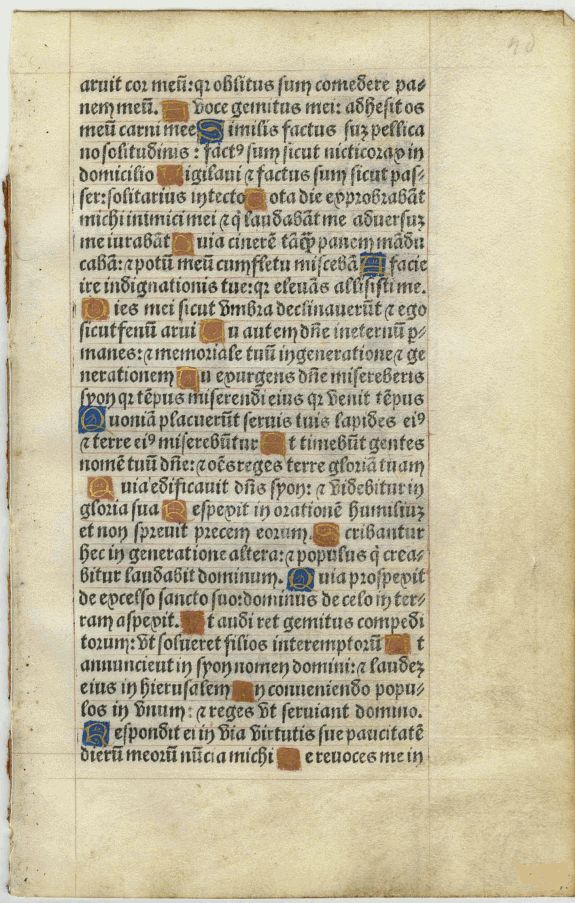 aruit cor meū: qꝛ oblitus sum comedere pa-
nem meū. A voce gemitus mei: adhesit os
meū carni mee S imilis factus suꝫ pellica
no solitudinis : factꝰ sum sicut nicticorax in
domicilio V igilavi ⁊ factus sum sicut pas-
ser: solitarius in tecto T ota die exprobrabāt
michi inimici mei ⁊ q̄ laudabāt me adversuꝫ
me iurabāt Q uia cinerē tāqꝫ panem mādu
cabā: ⁊ potū meū cum fletu miscebā A facie
ire indignationis tue: qꝛ elevās allisisti me.
D ies mei sicut vmbra declinauerūt ⁊ ego
sicut fenum arui T u autem dn̄e in eternū p̱-
manes: ⁊ memoriale tuū in generatione ⁊ ge
nerationem T u exurgens dn̄e misereberis
syon qꝛ tēpus miserendi eius qꝛ venit tēpus
Q uoniā placuerūt servis tuis lapides eiꝰ
⁊ terre eiꝰ miserebūtur E t timebūt gentes
nomē tuū dn̄e: ⁊ oēs reges terre gloriā tuam
Q uia edificauit dn̄s syon: ⁊ videbitur in
gloria sua R espexit in orationē humiliuꝫ
et non sprevit precem eorum. S cribantur
hec in generatione altera: ⁊ populus q̄ crea-
bitur laudabit dominum. Q uia prospexit
de excelso sancto suo: dominus de celo in ter-
ram aspexit. V t audi ret gemitus compedi
torum: vt solueret filios interemptorū V t
annuncient in syon nomen domini: ⁊ laudeꝫ
eius in hierusalem I n conveniendo popu-
los in vnum : ⁊ reges vt serviant domino.
R espondit ei in via virtutis sue paucitatē
dierū meorū nūcia michi N e revoces me in